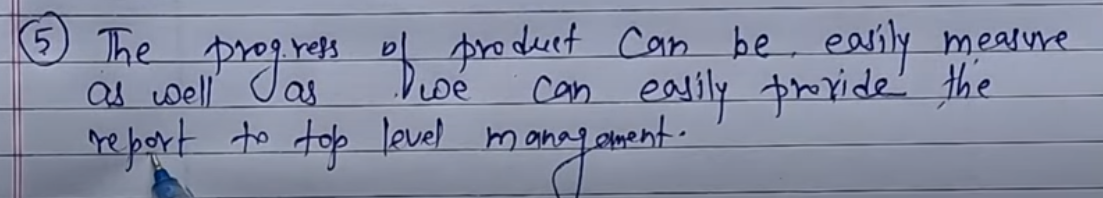 ⑤ The progress of product can be easily measure
as well as we can easily provide the
report to top level management.